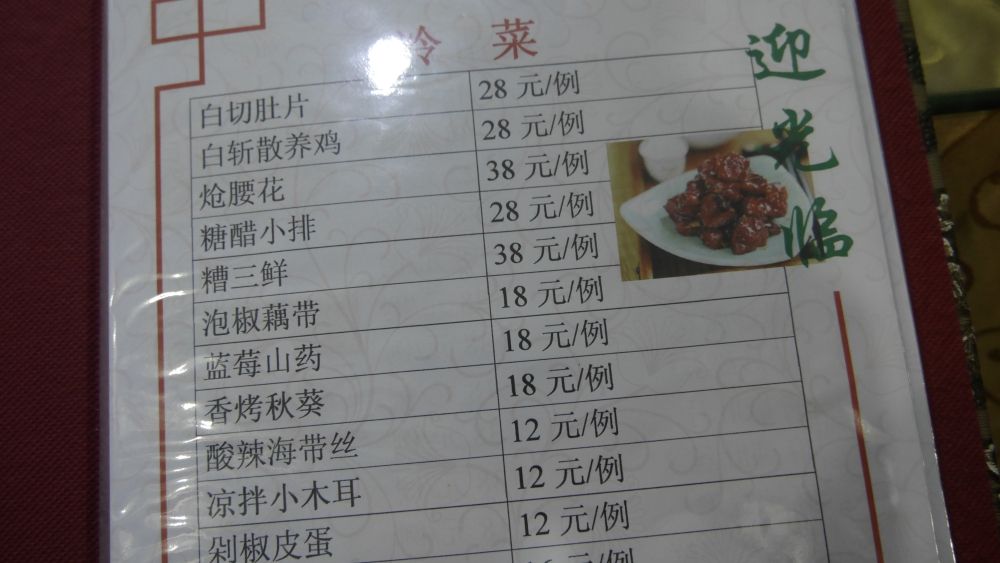 冷菜
白切肚片 28 元/例
白斩散养鸡 28 元/例
炝腰花 38 元/例
糖醋小排 28 元/例
糟三鲜 38 元/例
泡椒藕带 18 元/例
蓝莓山药 18 元/例
香烤秋葵 18 元/例
酸辣海带丝 12 元/例
凉拌小木耳 12 元/例
剁椒皮蛋 12 元/例
元/例
迎光临